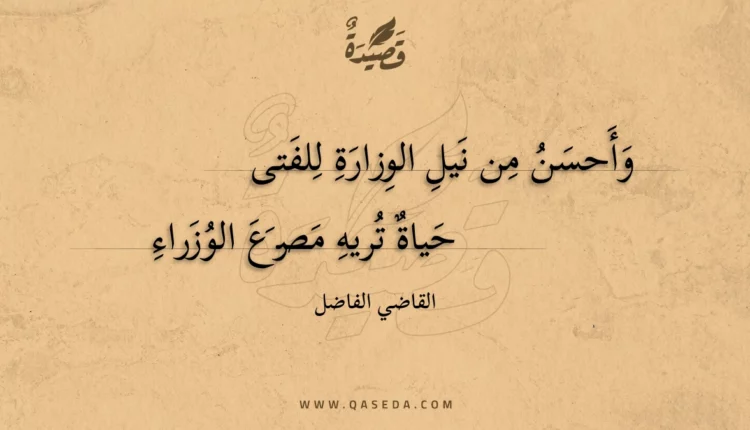 قَصِيدَةٌ
وَأَحسَنُ مِن نَيلِ الوِزارَةِ لِلفَتى
حَياةٌ تُريهِ مَصرَعَ الوُزَراءِ
القاضي الفاضل
WWW.QASEDA.COM